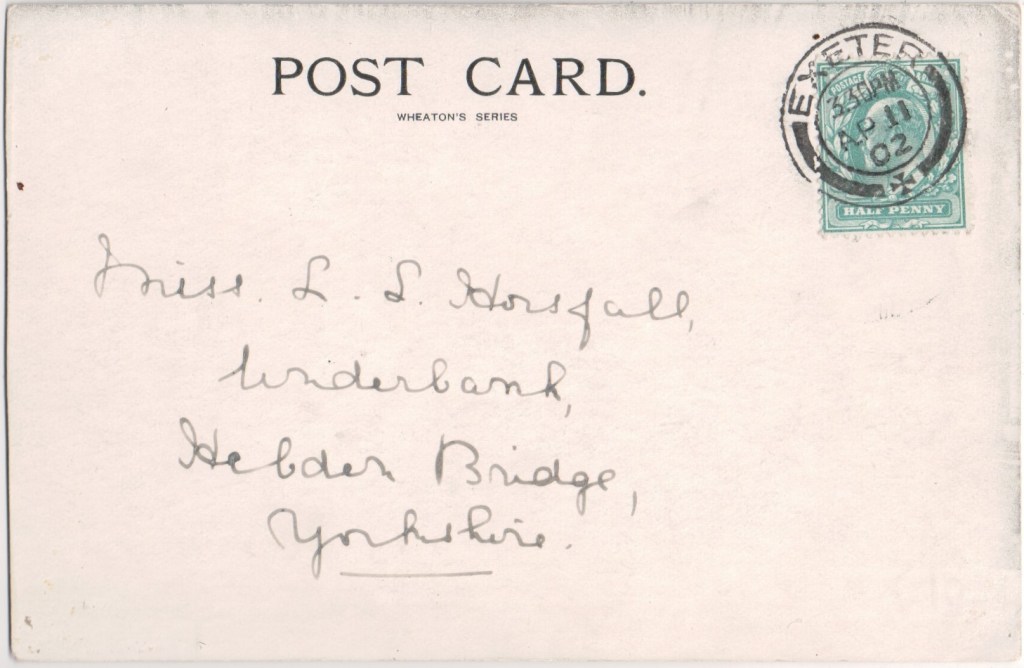 POST CARD.
WHEATON'S SERIES
EXETER
3.30PM
AP 11
02
POSTAGE
HALF PENNY
Miss. L. L. Horsfall,
Underbank,
Hebden Bridge,
Yorkshire.